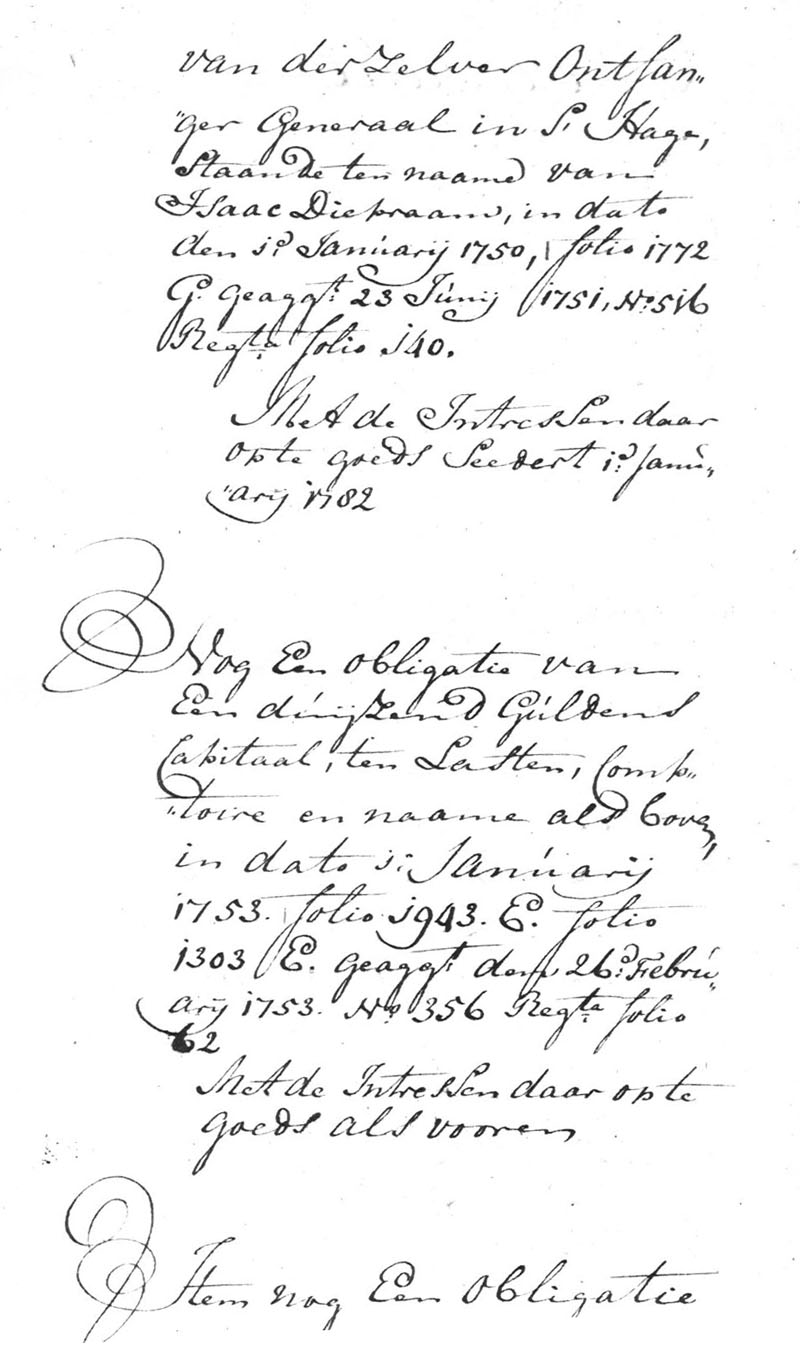 van der zelver Ontfan„
„ger Generaal in S. Hage,
Staande ten naame van
Isaac Diepraam, in dato
den 1e. Januarij 1750, folio 1772
G. geaggt. 23 Junij 1751, No. 516
Regta. folio 140.
Met de Intressen daar
op te goeds Seedert 1e. Janu„
„arij 1782
Nog Een obligatie van
Een duijzend Guldens
Capitaal, ten Lasten, Comp„
„toire en naame als boven,
in dato 1e. Januarij
1753. folio 1943. E. folio
1303 E. geaggt. den 26e. Febru„
arij 1753. No. 356 Regta. folio
62
Met de Intressen daar op te
goeds als vooren
Item nog Een obligatie